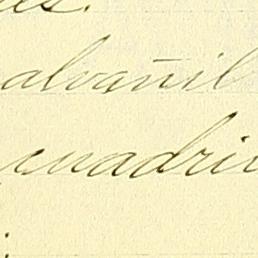 es.
alvañil
cuadri